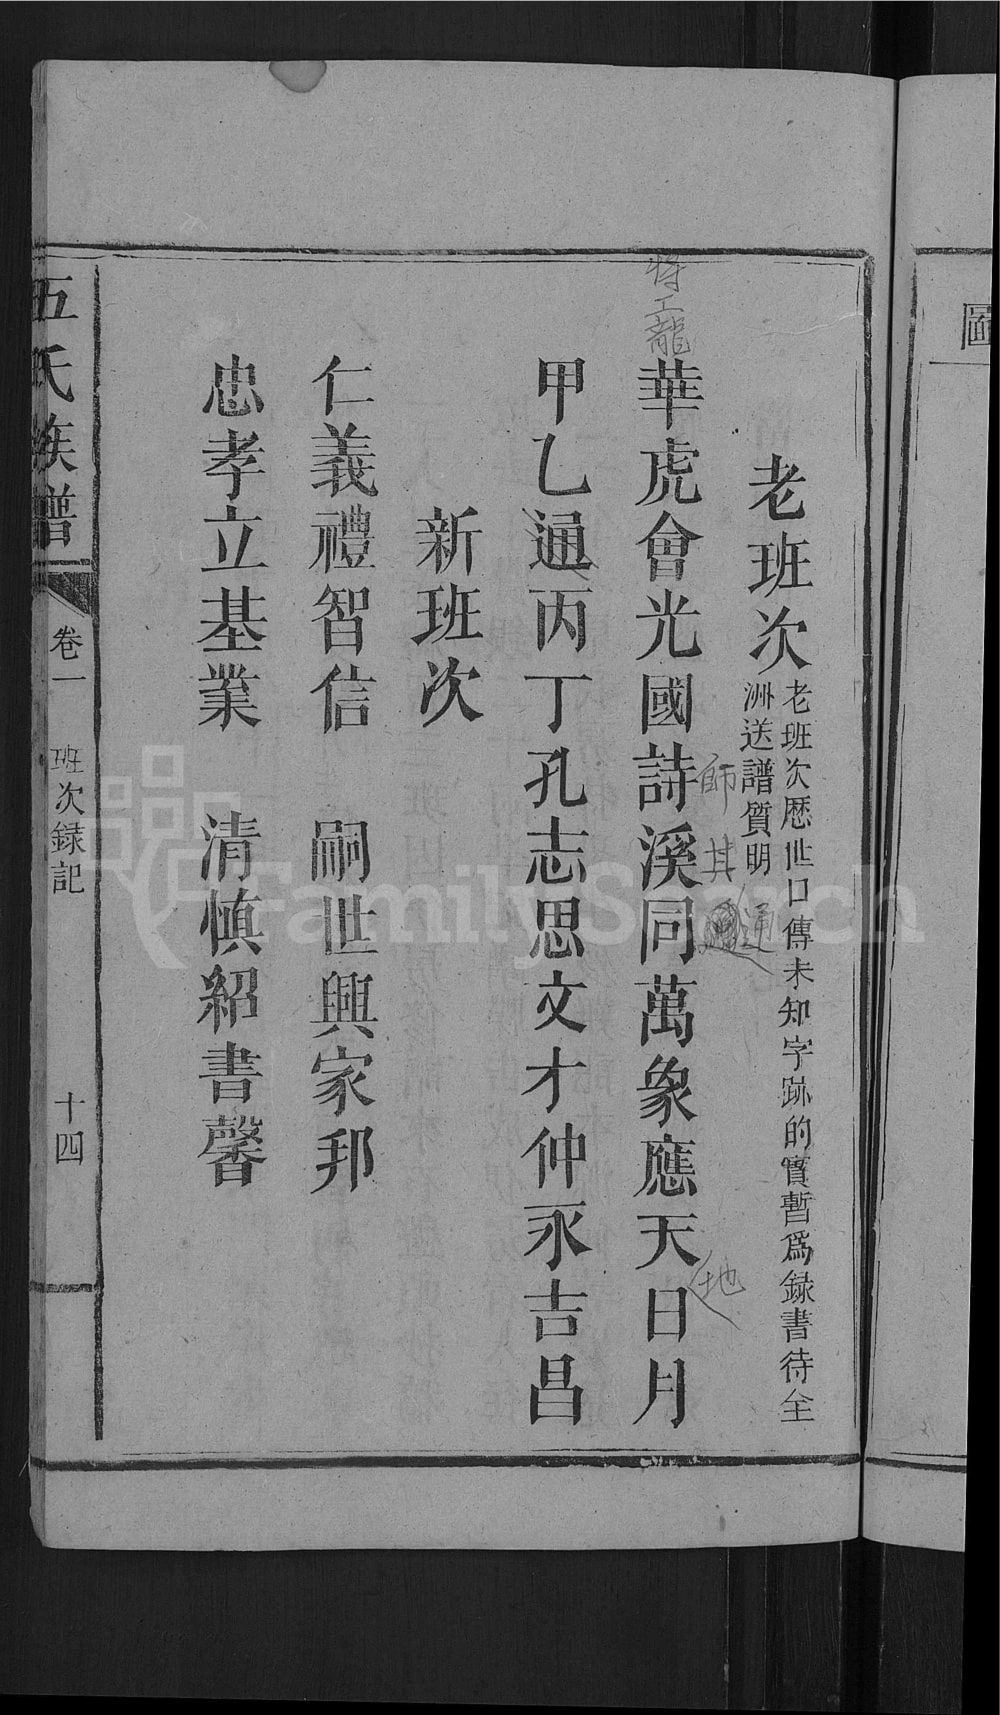 圖
老班次
老班次歷世口傳未知字跡的實暫爲録書待全
洲送譜質明
將工龍
華虎會光國詩溪同萬象應天日月
師其通
地
甲乙通丙丁孔志思文才仲永吉昌
新班次
仁義禮智信 嗣世興家邦
忠孝立基業 清慎紹書馨
伍氏族譜 卷一 班次録記 十四
FamilySearch